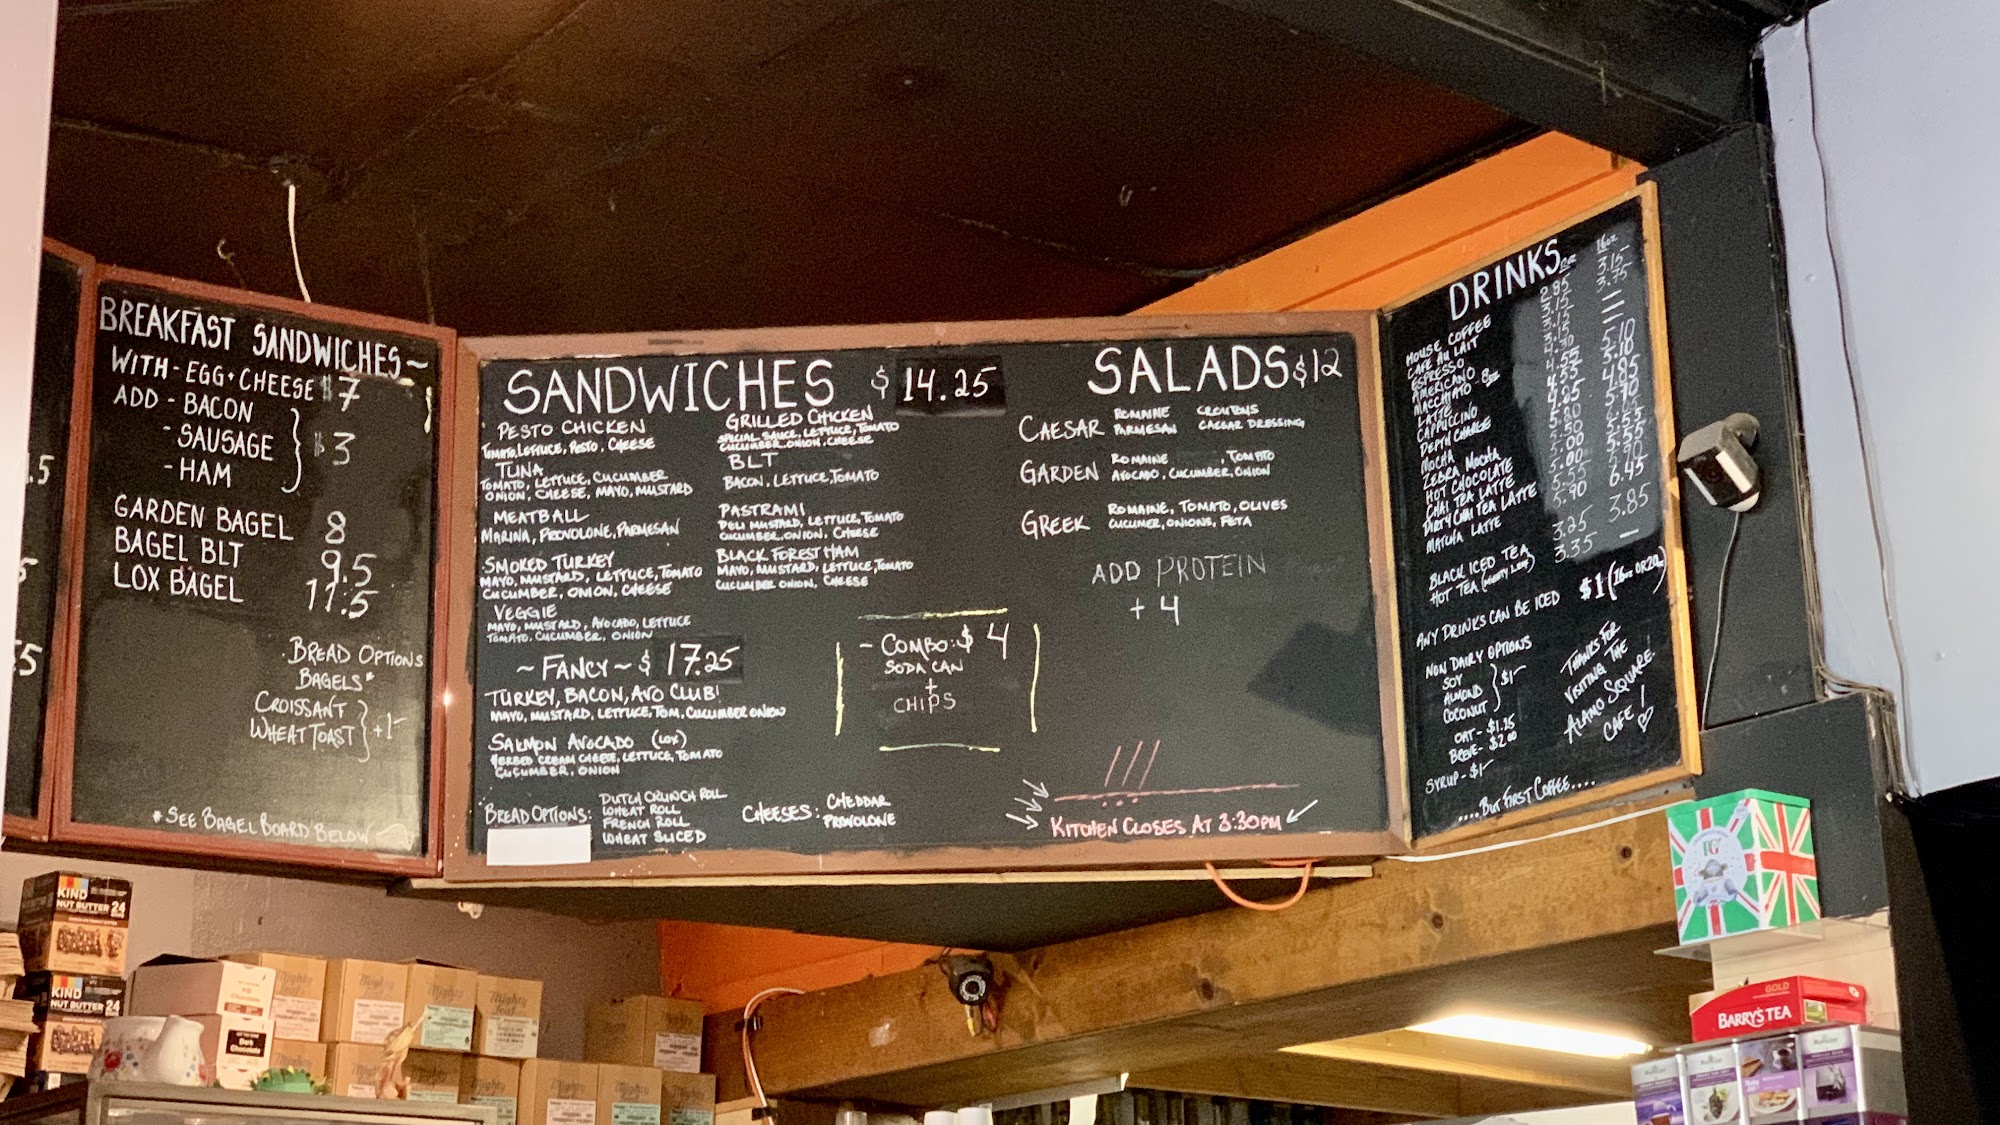 .5
5
5
BREAKFAST SANDWICHES~
WITH - EGG + CHEESE $7
ADD - BACON
- SAUSAGE
- HAM
$3
GARDEN BAGEL 8
BAGEL BLT 9.5
LOX BAGEL 11.5
BREAD OPTIONS
BAGELS*
CROISSANT
WHEAT TOAST
+1-
*SEE BAGEL BOARD BELOW
SANDWICHES $14.25
PESTO CHICKEN
TOMATO, LETTUCE, PESTO, CHEESE
TUNA
TOMATO, LETTUCE, CUCUMBER
ONION, CHEESE, MAYO, MUSTARD
MEATBALL
MARINA, PROVOLONE, PARMESAN
SMOKED TURKEY
MAYO, MUSTARD, LETTUCE, TOMATO
CUCUMBER, ONION, CHEESE
VEGGIE
MAYO, MUSTARD, AVOCADO, LETTUCE
TOMATO, CUCUMBER, ONION
GRILLED CHICKEN
SPECIAL SAUCE, LETTUCE, TOMATO
CUCUMBER, ONION, CHEESE
BLT
BACON, LETTUCE, TOMATO
PASTRAMI
DELI MUSTARD, LETTUCE, TOMATO
CUCUMBER, ONION, CHEESE
BLACK FOREST HAM
MAYO, MUSTARD, LETTUCE, TOMATO
CUCUMBER ONION, CHEESE
~ FANCY ~ $17.25
TURKEY, BACON, AVO CLUB!
MAYO, MUSTARD, LETTUCE, TOM, CUCUMBER ONION
SALMON AVOCADO (LOX)
HERBED CREAM CHEESE, LETTUCE, TOMATO
CUCUMBER, ONION
BREAD OPTIONS:
DUTCH CRUNCH ROLL
WHEAT ROLL
FRENCH ROLL
WHEAT SLICED
CHEESES: CHEDDAR
PROVOLONE
- COMBO: $4
SODA CAN
+
CHIPS
SALADS $12
CAESAR
ROMAINE CROUTONS
PARMESAN CAESAR DRESSING
GARDEN
ROMAINE, TOMATO
AVOCADO, CUCUMBER, ONION
GREEK
ROMAINE, TOMATO, OLIVES
CUCUMER, ONIONS, FETA
ADD PROTEIN
+ 4
KITCHEN CLOSES AT 3:30PM
DRINKS
16oz
HOUSE COFFEE 2.85 3.15
CAFE AU LAIT 3.75
ESPRESSO
AMERICANO
MACCHIATO 8oz
LATTE
CAPPUCCINO
DEPTH CHARGE
MOCHA
ZEBRA MOCHA
HOT CHOCOLATE
CHAI TEA LATTE
DIRTY CHAI TEA LATTE
MATCHA LATTE
6.45
BLACK ICED TEA 3.25 3.85
HOT TEA (MIGHTY LEAF) 3.35 -
ANY DRINKS CAN BE ICED $1 (16oz OR 20oz)
NON DAIRY OPTIONS
SOY
ALMOND
COCONUT
$1-
OAT - $1.25
BREVE - $2.00
SYRUP - $1-
THANKS FOR
VISITING THE
ALAMO SQUARE
CAFE!
....BUT FIRST COFFEE....
KIND
NUT BUTTER 24
KIND
NUT BUTTER 24
Chocolate
Dark
Chocolate
Mighty
leaf
PG
GOLD
BARRY'S TEA